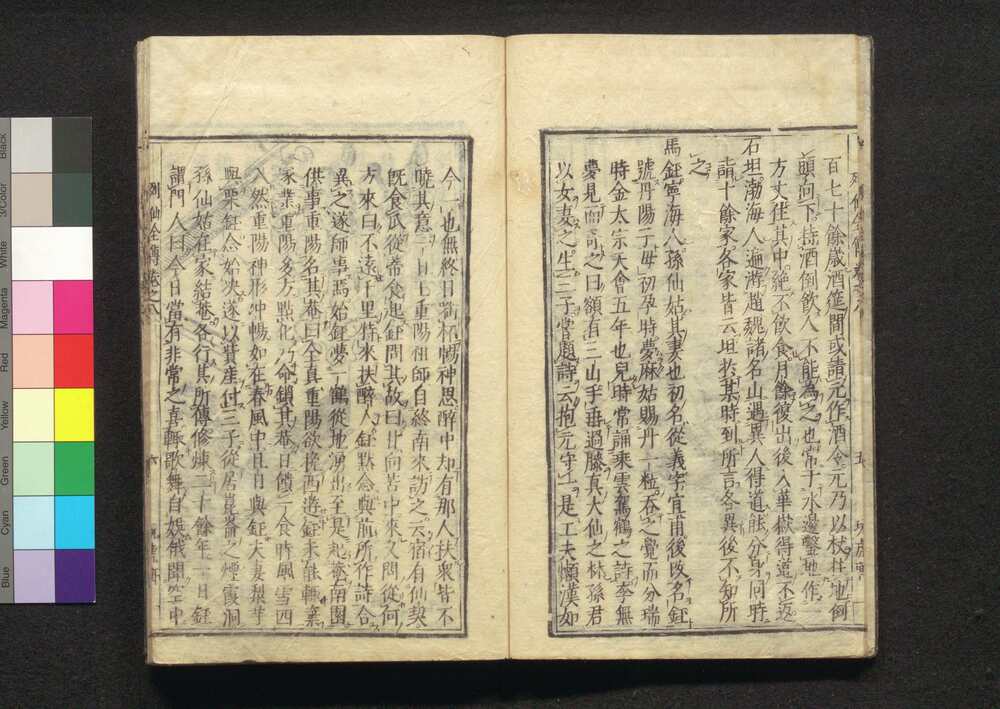 百七十餘歳酒筵間或請元作酒令元乃以杖拄地倒
頭向下持酒倒飲人不能為之也常于水邊鑿地作一
方丈住其中絶不飲食月餘復出後入華嶽得道不返
石坦渤海人遍游趙魏諸名山遇異人得道能分身同時
請十餘家各家皆云坦於某時到所言各異後不知所
之
馬鈺寧海人孫仙姑其妻也初名從義字宜甫後改名鈺
號丹陽子母初孕時夢麻姑賜丹一粒吞之覺而分瑞
時金太宗天會五年也兒時常誦乘雲駕鶴之詩李無
夢見而奇之曰額有三山手垂過膝真大仙之材孫君
以女妻之生三子嘗題詩云抱元守一是工夫懶漢如
今一也無終日銜杯暢神思醉中却有那人扶衆皆不
曉其意一日王重陽祖師自終南來訪之云宿有仙契
既食瓜從蒂食起鈺問其故曰甘向苦中來又問從何
方來曰不遠千里特來扶醉人鈺黙念與前所作詩合
異之遂師事焉始鈺夢一鶴從地湧出至是起菴南園
供事重陽名其菴曰全真重陽欲挽西遊鈺未能輒棄
家業重陽多方點化乃命鎖其菴日饋一食時風雪四
入然重陽神形冲暢如在春風中旦日與鈺夫妻梨芋
與栗鈺念始决遂以貲産付三子從居崑崙之煙霞洞
孫仙姑在家結菴各行其所傳修煉二十餘年一日鈺
謂門人曰今日當有非常之喜輒歌舞自娯俄聞空中
列仙全傳卷之八
六